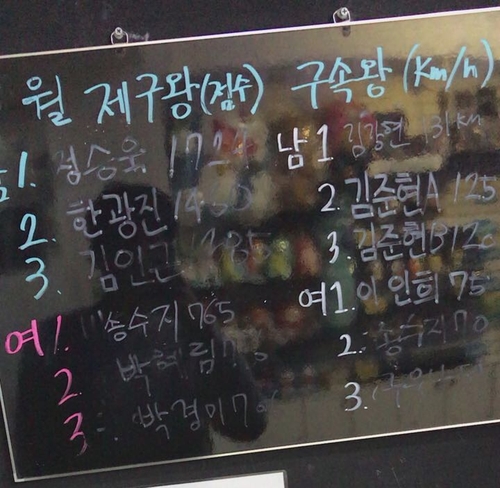 월 제구왕(점수) 구속왕 (Km/h)
1. 정승욱 172 남 1 김강현 131km
2. 한광진 2. 김준현A 125
3. 김인근 3. 김준현B 12
여 1. 송수지 765 여 1. 이인희 75
2. 박혜림 7 2. 송수지 70
3. 박경미 7 3.